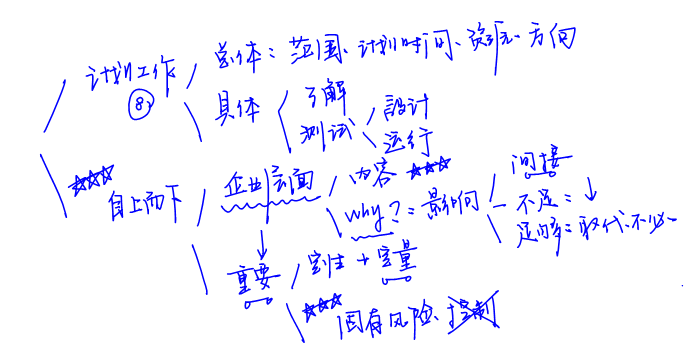 计划工作
⑧
总体：范围、计划时间、资源、方向
具体
了解
测试
設计
运行
☆☆☆
自上而下
企业层面
内容 ☆☆☆
why？：影响
间接
不足：↓
足够：取代、不必
↓
重要
定性 + 定量
☆☆☆
固有风险、控制